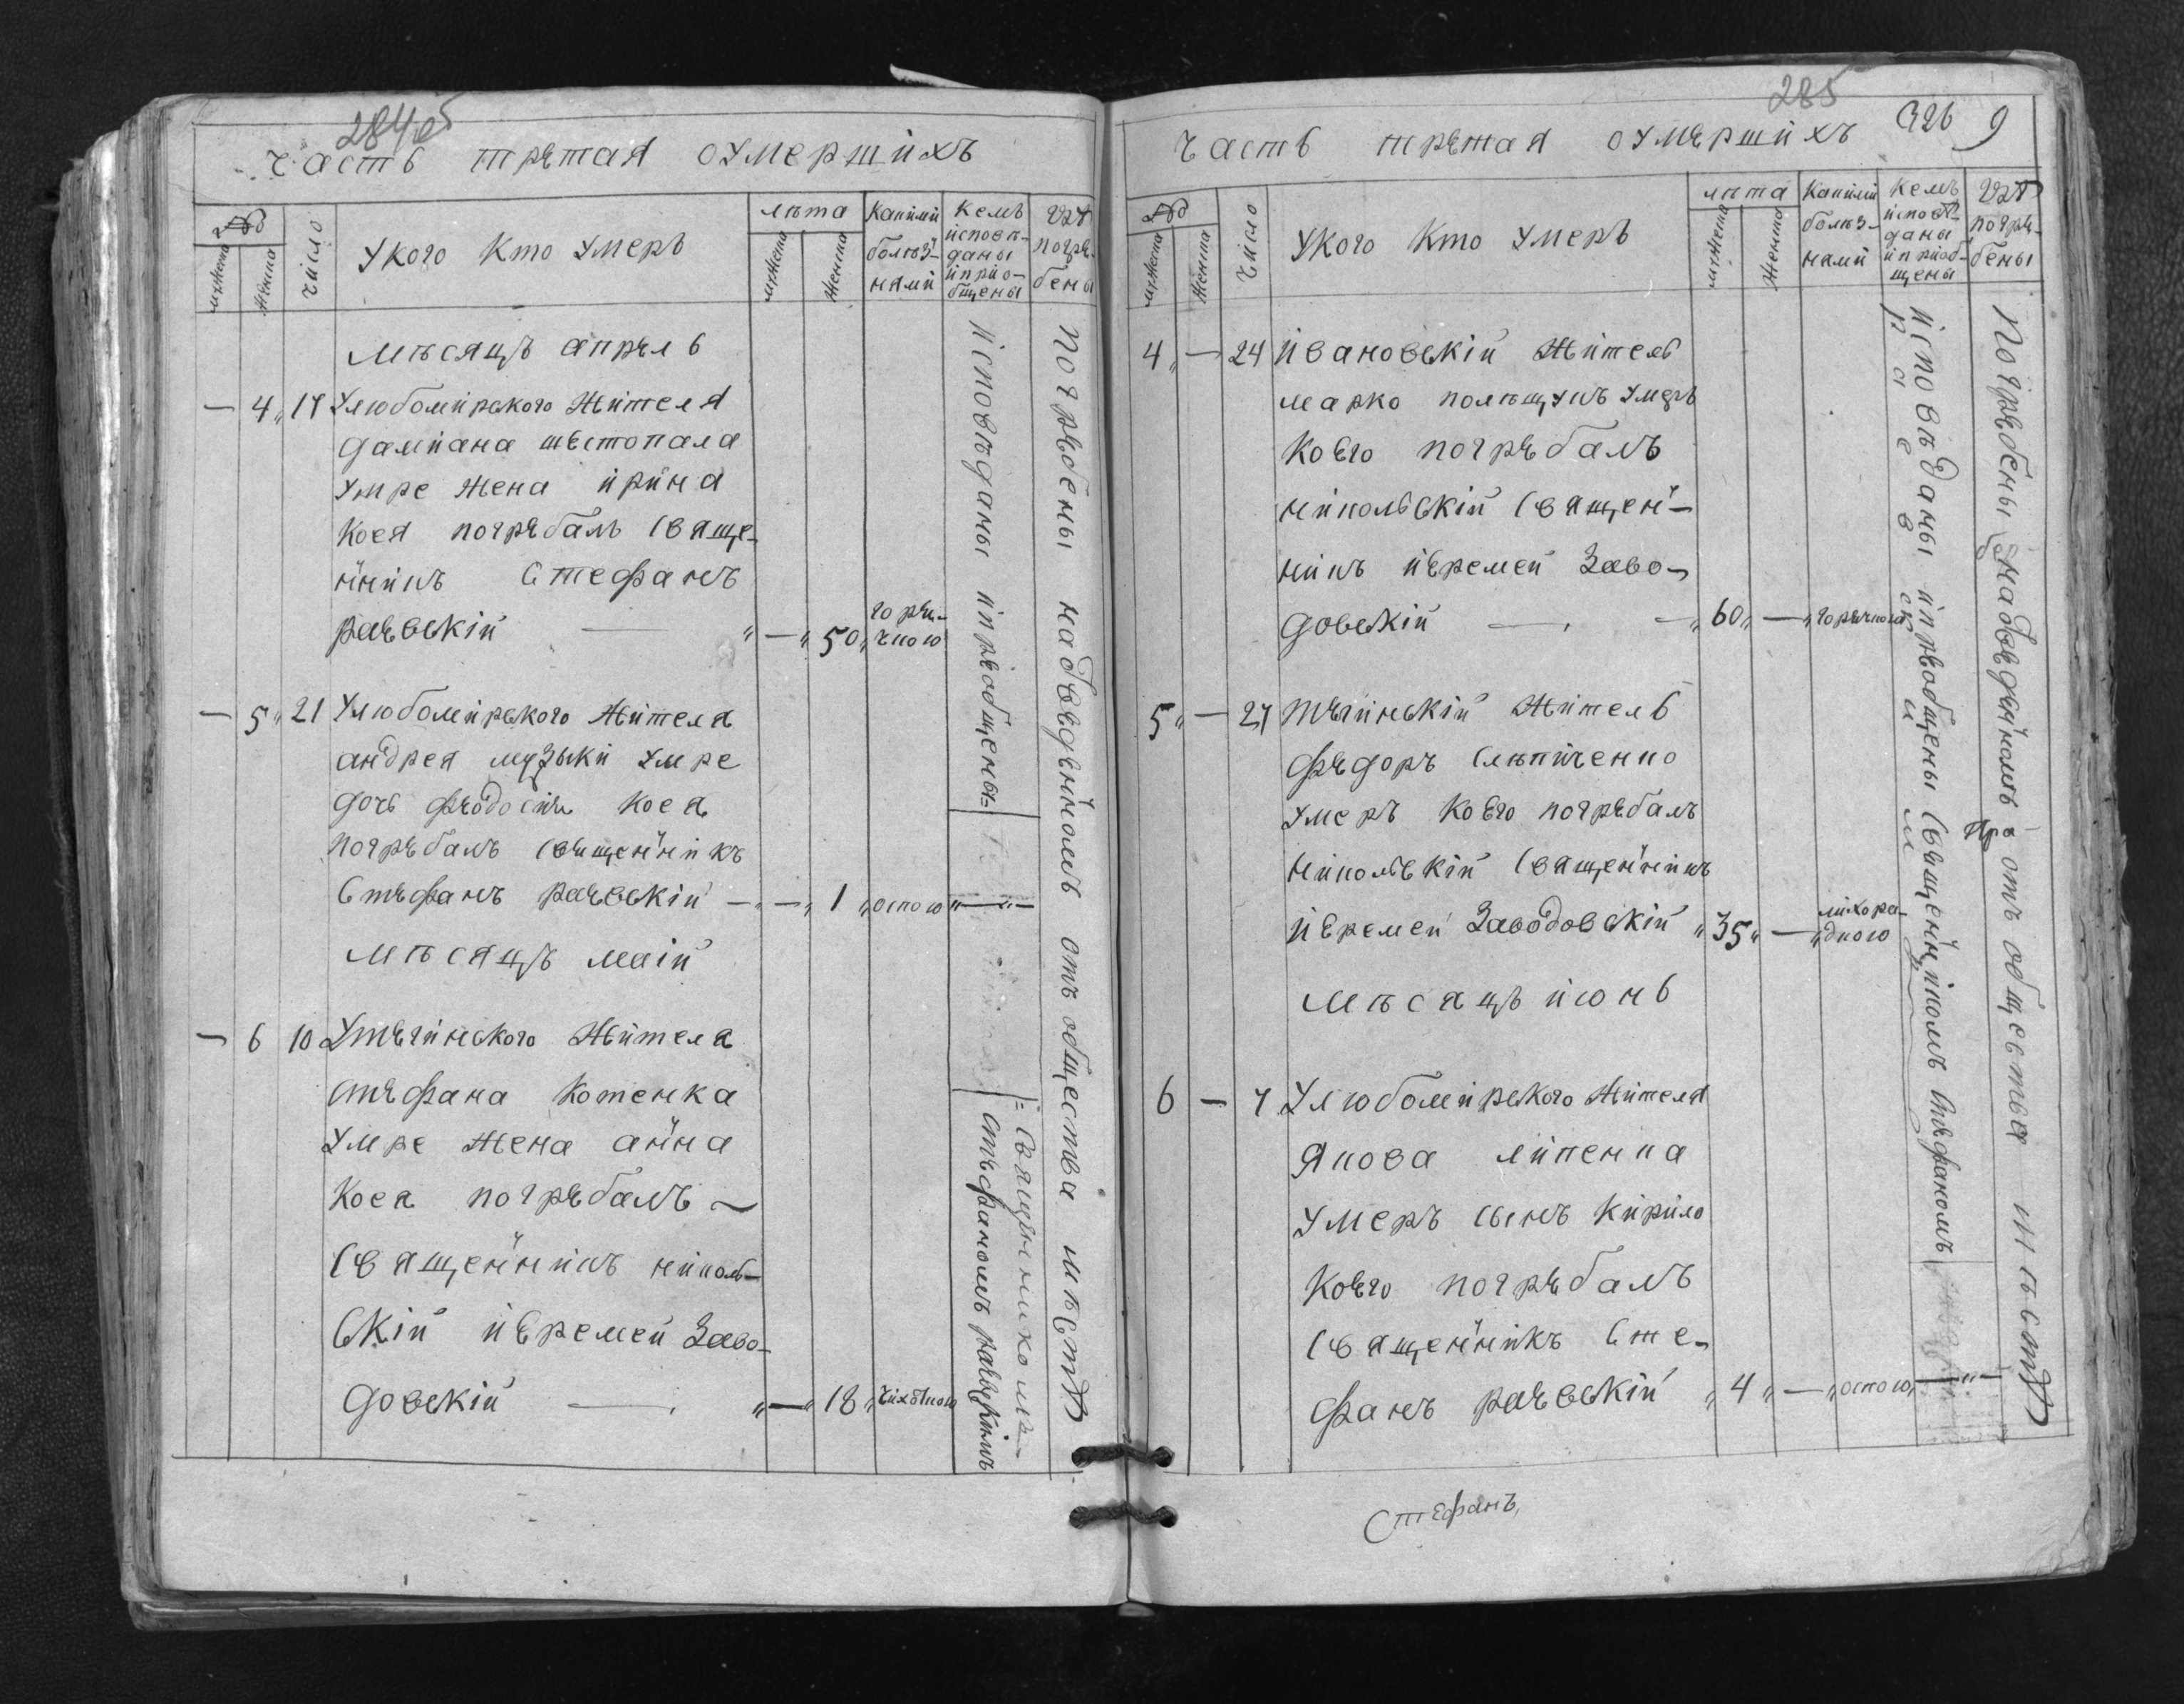 284об
часть третая оумершихъ
№
мужеска
женска
число
у кого кто умеръ
лѣта
мужеска
женска
какими болѣзнями
кемъ исповеданы и приобщены
где погребены
месяцъ апрель
— 4 17 у любомирского жителя
дамиана шестопала
умре жена ирина
коея погребалъ свяще-
нникъ Стефанъ
раевский — — 50 горячкою
— 5 21 у любомирского жителя
андрея музыки умре
дочь феодосия коея
погребалъ священникъ
Стефанъ раевский — — 1 оспою — „ —
месяцъ маий
— 6 10 у тегинского жителя
стефана котенка
умре жена анна
коея погребалъ
священникъ николь-
ский иеремей Заво-
довский — — 18
исповѣданы и приобщены
священникомъ
стефаномъ раевскимъ
погребены на отведенномъ отъ общества местѣ
285
326 9
часть третая оумершихъ
№
мужеска
женска
число
у кого кто умеръ
лѣта
мужеска
женска
какими болѣзнями
кемъ исповеданы и приобщены
где погребены
4 — 24 ивановский житель
марко полѣщукъ умеръ
коего погребалъ
никольский священ-
никъ иеремей Заво-
довский — 60 — горячкою
5 — 27 тегинский житель
федоръ слѣпченко
умеръ коего погребалъ
никольский священникъ
иеремей Заводовский 35 — лихорадкою
месяцъ июнь
6 — 7 у любомирского жителя
якова липенка
умеръ сынъ кирило
коего погребалъ
священникъ Сте-
фанъ раевский 4 — оспою — „ —
исповѣданы и приобщены священникомъ стефаномъ
раевскимъ
погребены на отведенномъ отъ общества местѣ
Стефанъ